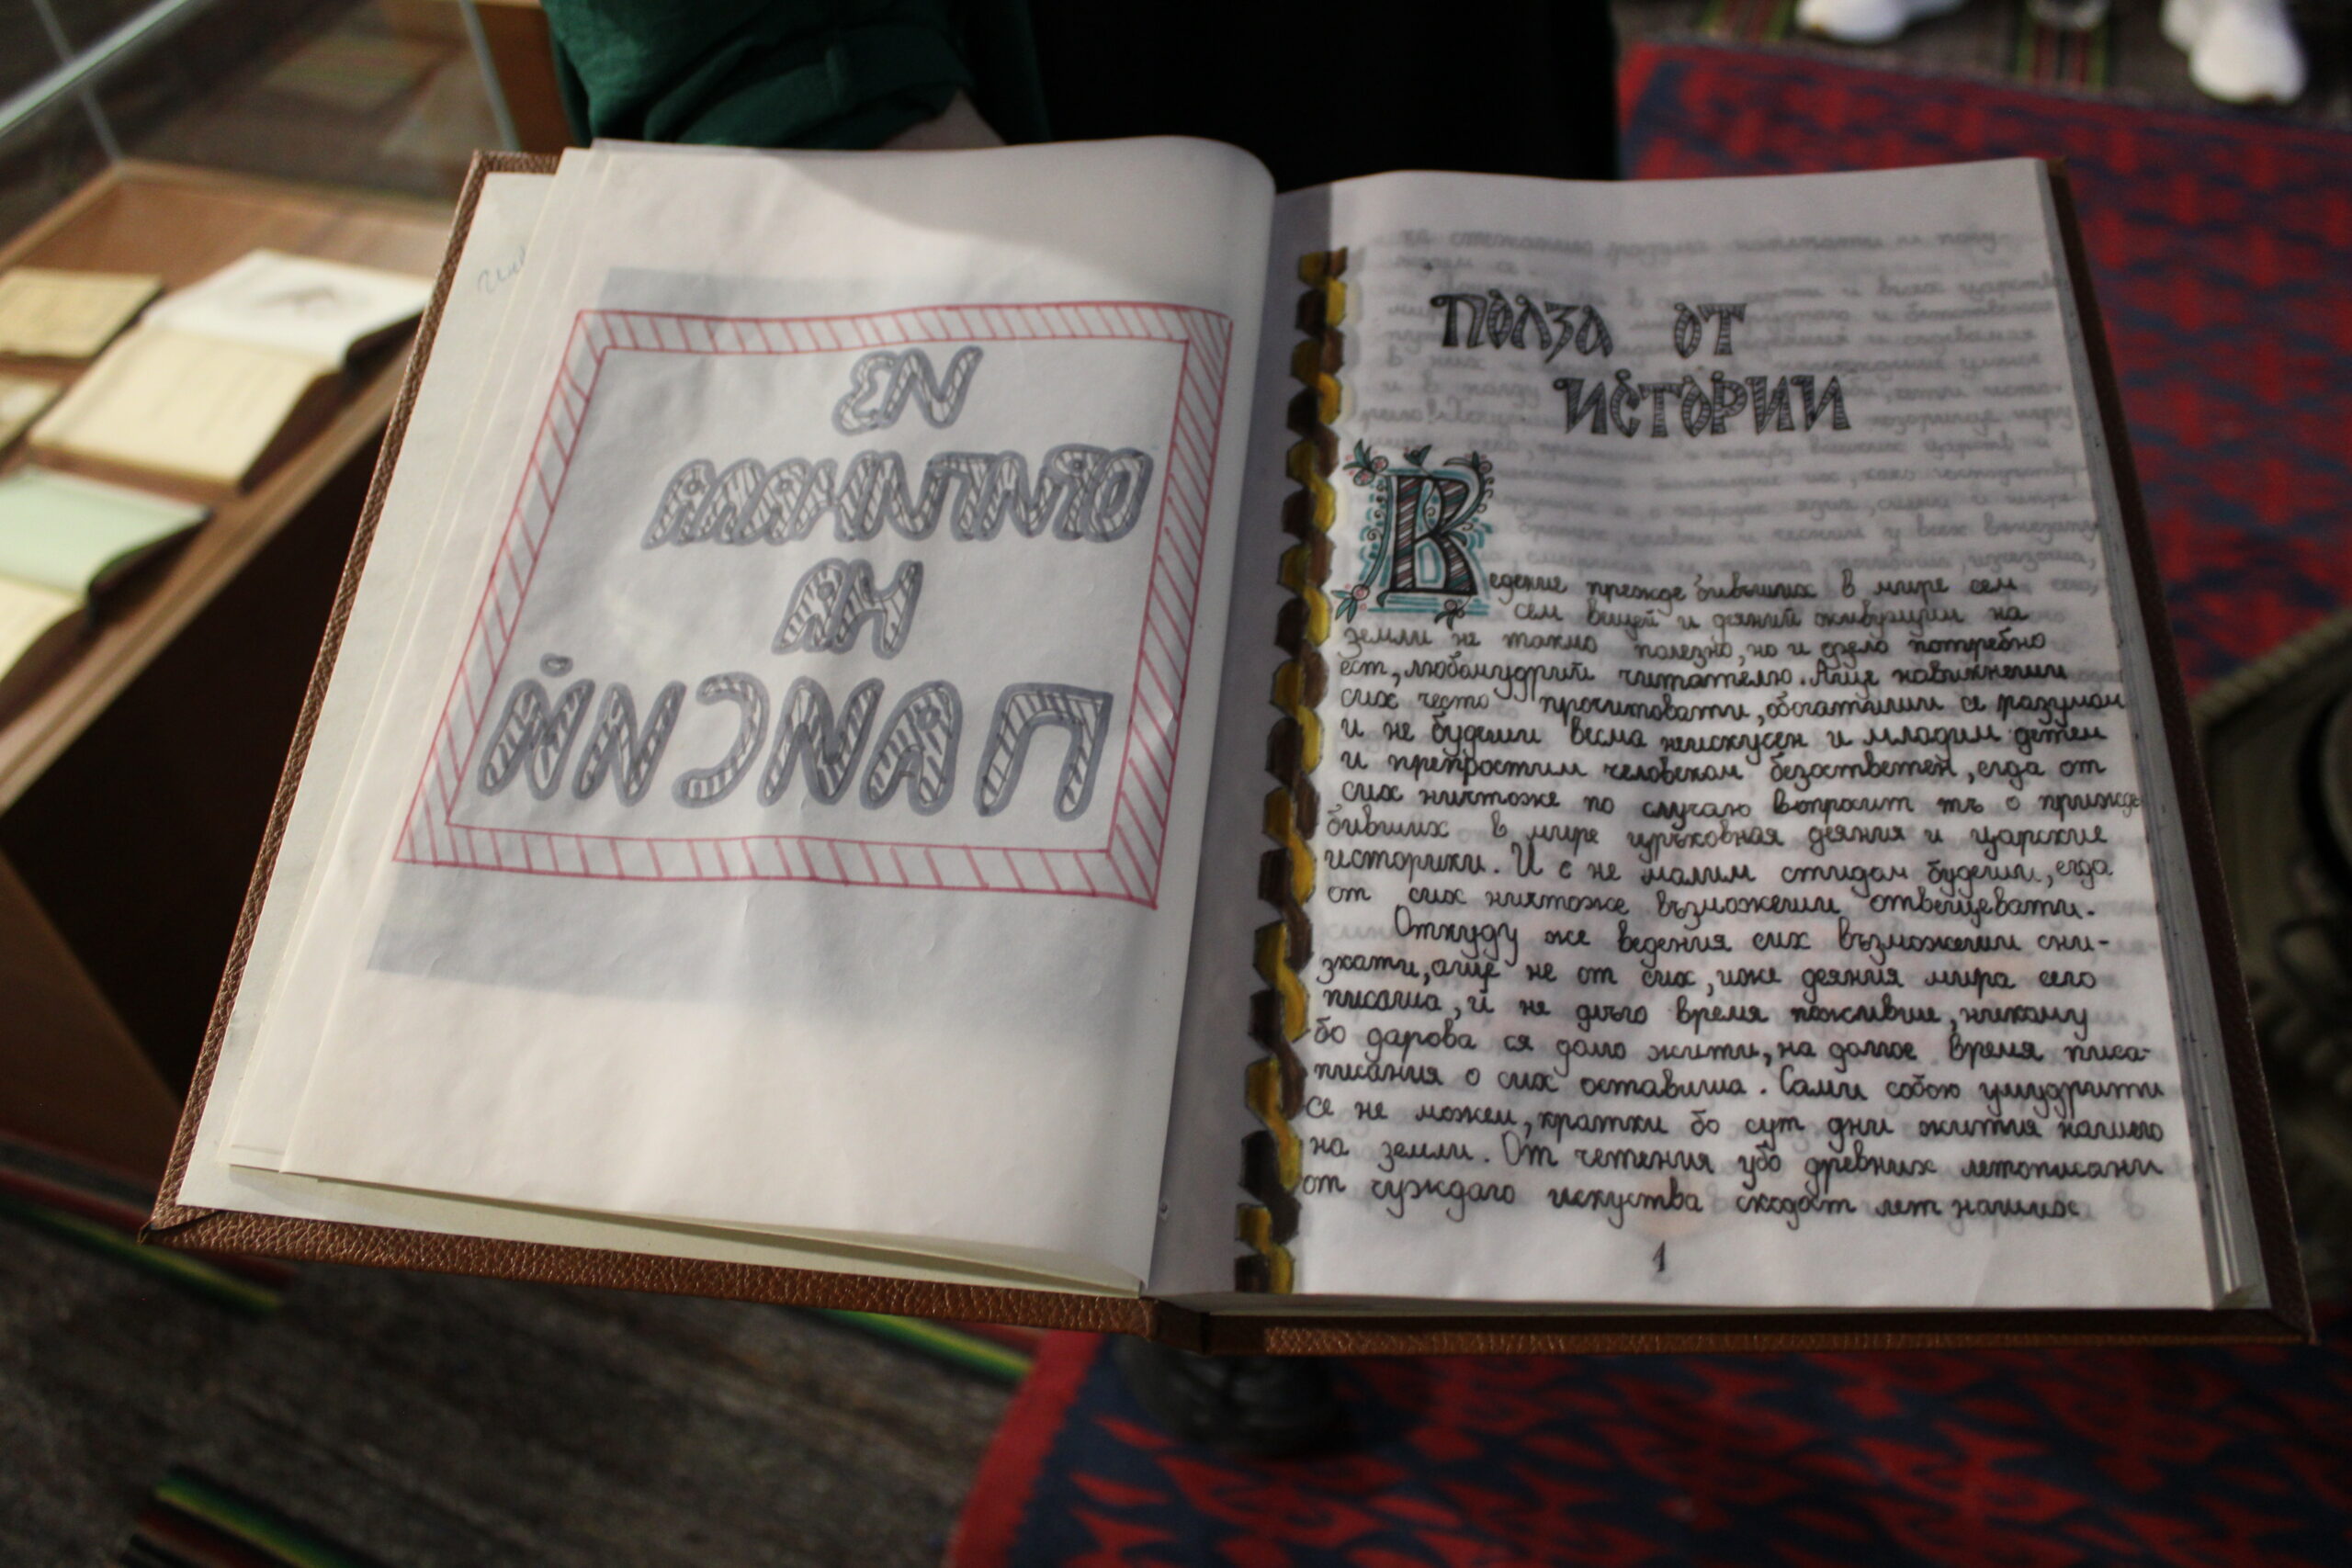 ИЗ
ОРИГИНАЛА
НА
ПАИСИЙ
ПОЛЗА ОТ
ИСТОРИИ
Ведение прежде бивших в мире сем
сем вещей и деяний живущим на
земли не токмо полезно, но и зело потребно
ест, любомудрий читателю. Аще навикнеши
сих често прочитовати, обогатиши се разумом
и не будеши весма неискусен и младим детем
и препростим человеком безответен, егда от
сих ничтоже по случаю вопросит тъ о прижде
бивших в мире црьковная деяния и царские
историки. И с не малим стидом будеши, егда
от сих ничтоже възможеши отвещевати.
Откуду же ведения сих възможеши сни-
зкати, аще не от сих, иже деяния мира сего
писаша, и не дльго время пожившие, никому
бо дарова ся долго жити, на долгое время писа-
писания о сих оставиша. Сами собою умудрити
се не можем, кратки бо сут дни жития нашего
на земли. От четения убо древних летописани
от чуждаго искуства скодост лет наших
1